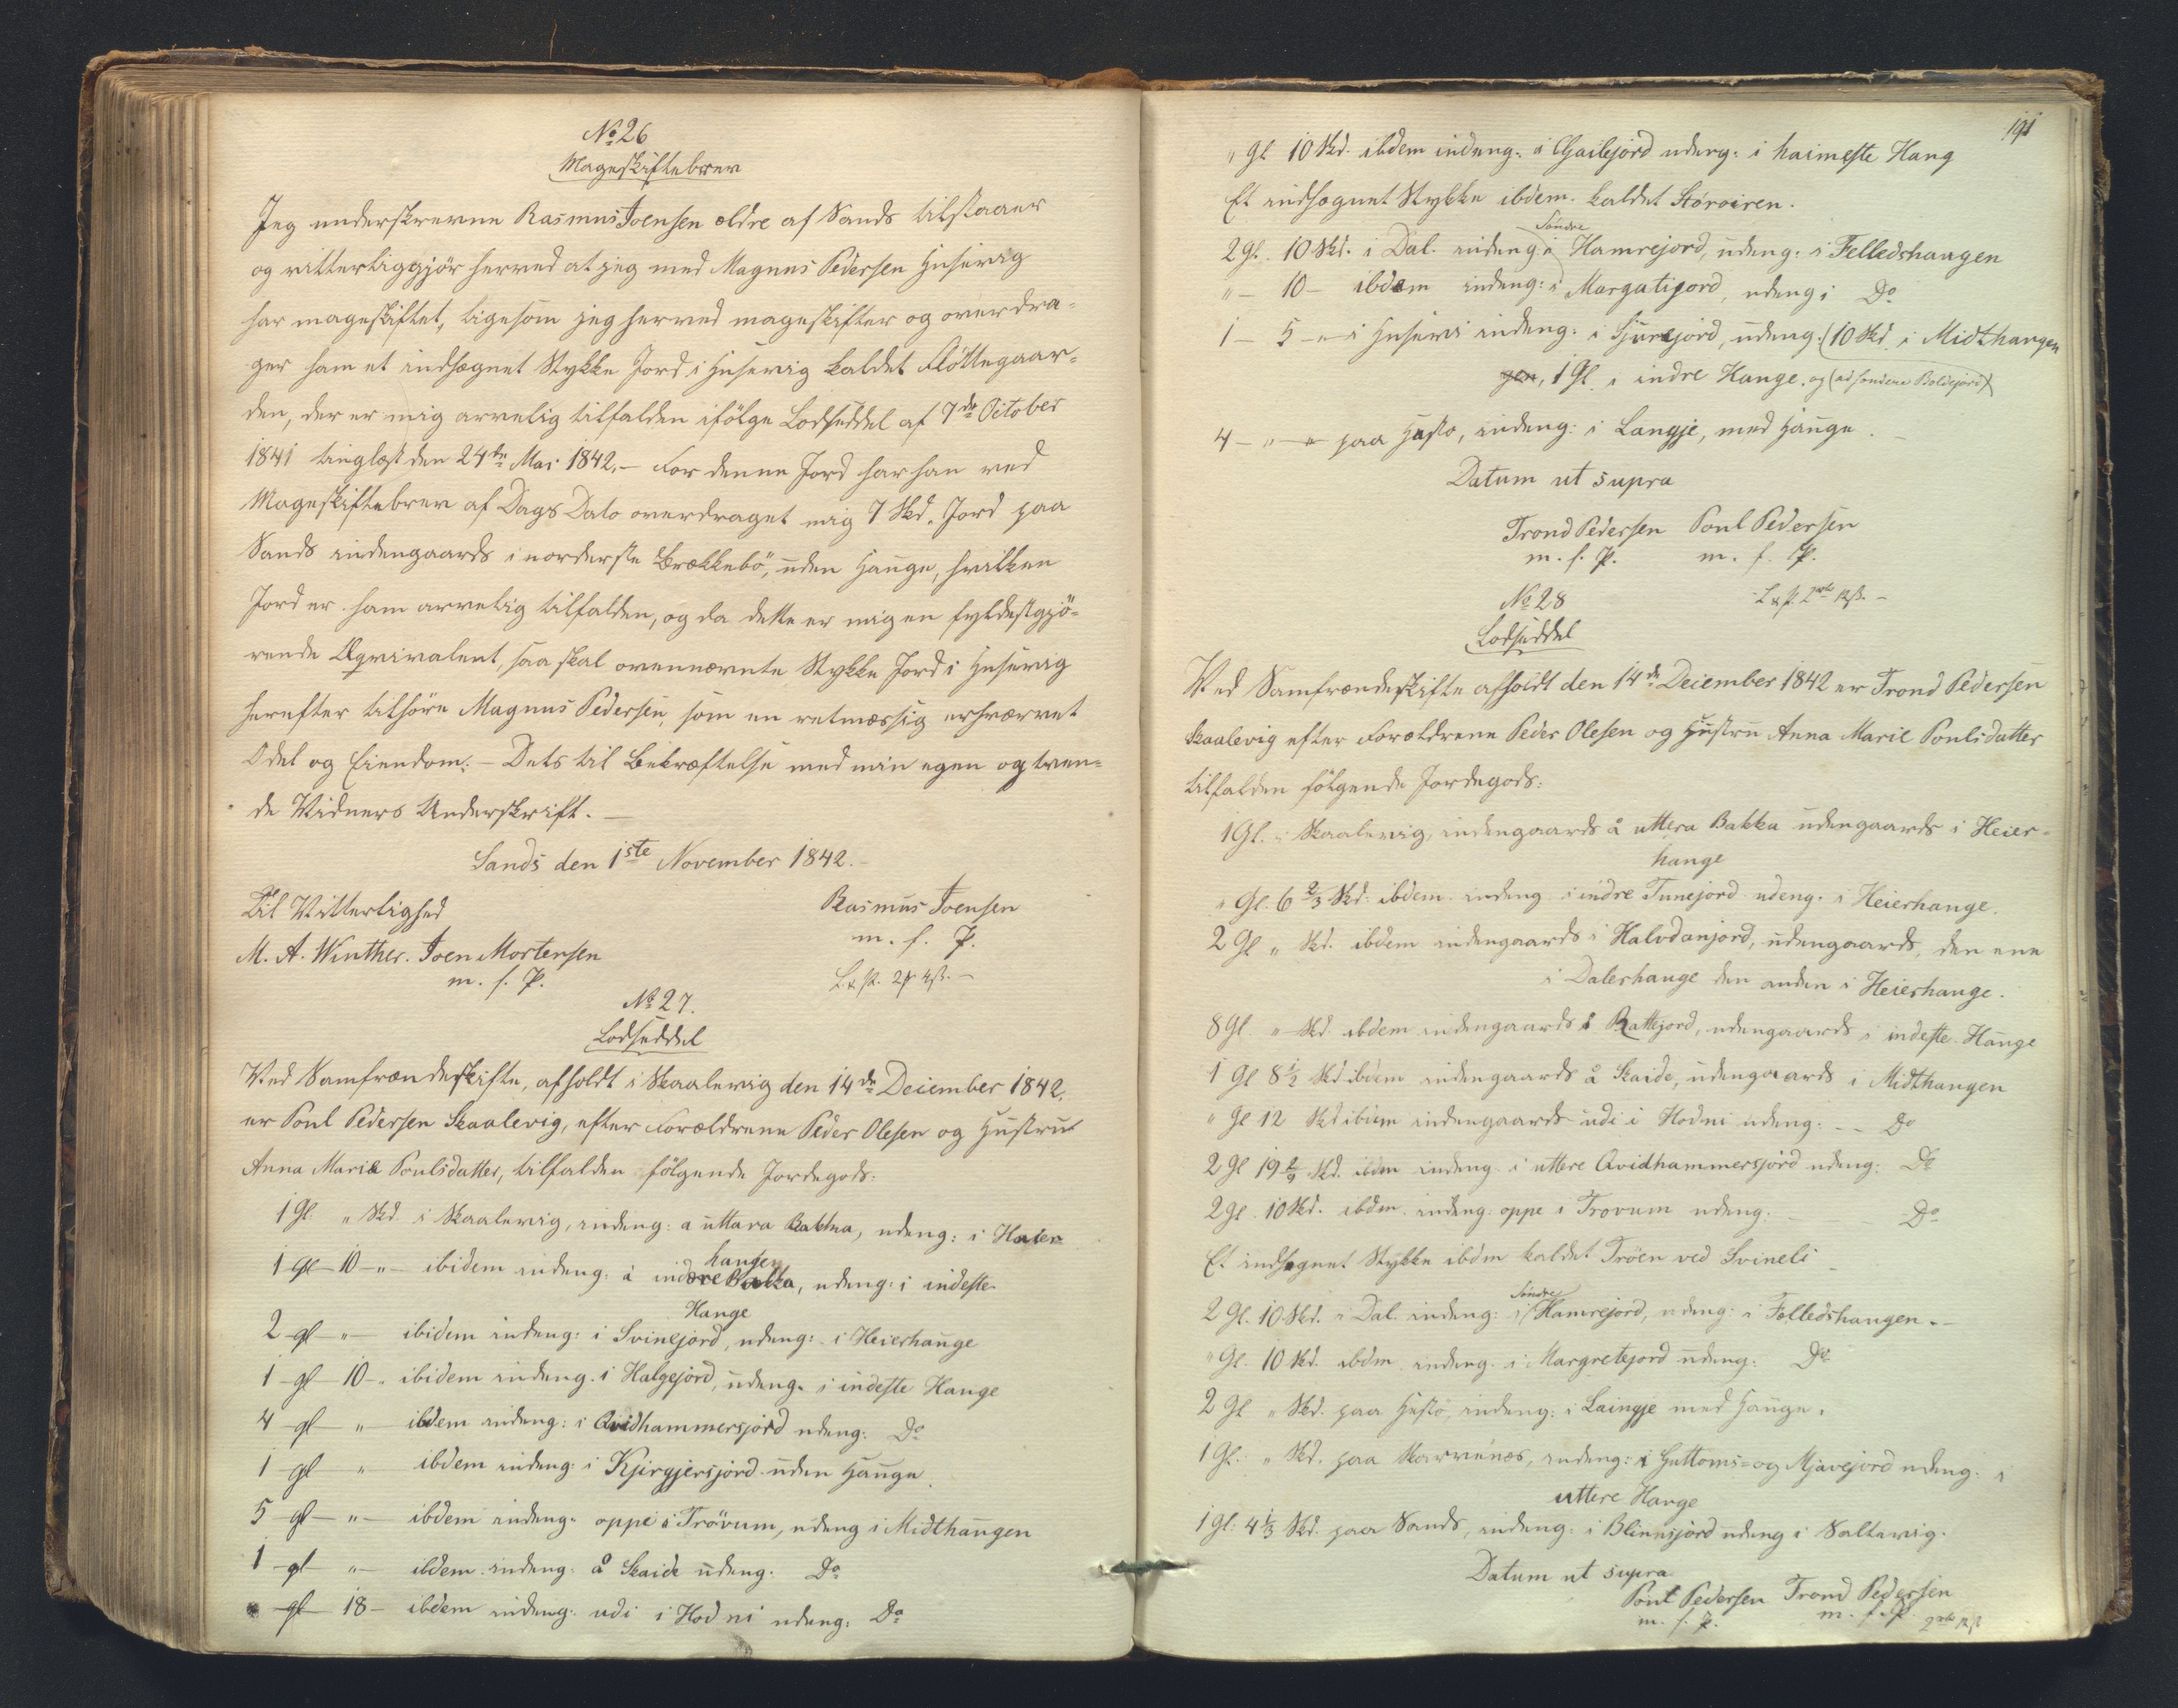 No 26
Mageskiftebrev
Jeg underskrevne Rasmus Joensen ældre af Sands tilstaaer
og vitterliggjør herved at jeg med Magnus Pedersen Husevig
har mageskiftet, ligesom jeg herved mageskifter og overdra-
ger ham et indhegnet Stykke Jord i Husevig kaldet Fløttegaar-
den, der er mig arvelig tilfalden ifølge Lodseddel af 7de October
1841 tinglæst den 24de Mai 1842. – For denne Jord har han ved
Mageskiftebrev af Dags Dato overdraget mig 7 Skd. Jord paa
Sands indengaards i norderste Brekkebø, uden Hauge, hvilken
Jord er ham arvelig tilfalden, og da dette er mig en fyldestgjø-
rende Æqvivalent, saa skal ovennævnte Stykke Jord i Husevig
herefter tilhøre Magnus Pedersen, som en retmæssig erhvervet
Odel og Eiendom. – Dets til Bekræftelse med min egen og tven-
de Vidners Underskrift. –
Sands den 1ste November 1842. –
Til Vitterlighed
Rasmus Joensen
M. A. Winther. Joen Mortensen
m. f. P.
m. f. P.
No 27.
Lodseddel
Ved Samfrændeskifte, afholdt i Skaalevig den 14de December 1842,
er Poul Pedersen Skaalevig, efter Forældrene Peder Olesen og Hustru
Anna Marie Poulsdatter, tilfalden følgende Jordegods:
1 Gl. " Skd. i Skaalevig, indeng: a uttara Bakka, udeng: i Heier-
hangen
1 Gl – 10 – " – ibidem indeng: å indre Bakka, udeng: i indeste
Hange
2 – gl – " – ibidem indeng: i Svinejord, udeng: i Heierhange
1 – gl – 10 – " ibidem indeng. i Halgejord, udeng. i indeste Hange
4 – gl – " ibdem indeng: i Qvidhammersjord udeng: Do
1 gl – " ibdem indeng: i Kjirgjersjord uden Hauge.
5 – gl – " – ibdem indeng. oppe i Trövum, udeng i Midthangen
1 – gl – " – ibdem indeng. å Skaide udeng. Do
" – gl – 18 – ibdem indeng: udi i Hodni udeng: Do
191
" Gl. 10 Skd. ibdem indeng: i Gjailejord udeng: i haimeste Hang
Et indhegnet Stykke ibdem. kaldet Störoiren.
2 Gl. 10 Skd. i Dal. indeng: i Søndre Hamrejord, udeng. i Felledshangen
" – 10 – ibdem indeng: i Margatijord, udeng i Do
1 – 5 – " – i Husevi indeng. i Sjurejord, udeng. (10 Skd. i Midthangen
gen, 1 Gl. i indre Hange. og (ad sondere Boldejord)
4 – " – " paa Hestø, indeng: i Langje, med Hauge.
Datum ut supra
Trond Pedersen Poul Pedersen
m. f. P. m. f. P.
No 28
Lodseddel
Ved Samfrændeskifte afholdt den 14de December 1842 er Trond Pedersen
Skaalevig efter Forældrene Peder Olesen og Hustru Anna Marie Poulsdatter
tilfalden følgende Jordegods:
1 Gl. i Skaalevig, indengaards å uttera Bakka udengaards i Heier-
hange
" Gl. 6 2/3 Skd. ibdem indeng i indre Tunejord udeng. i Heierhange.
2 Gl " Skd. ibdem indengaards i Halvdanjord, udengaards, den ene
i Dalershange den anden i Heierhange.
8 Gl. " Skd. ibdem indengaards i Rattejord, udengaards i indeste Hange
1 Gl 8 1/2 Skd ibdem indengaards å Skaide, udengaards i Midthangen
" Gl 12 Skd ibdem indengaards udi i Hodni udeng: – – Do
2 Gl 19 Skd. ibdm indeng. i uttere Qvidhammersjord udeng: Do
2 Gl. 10 Skd. ibdm. indeng. oppe i Trovum udeng. Do
Et indhegnet Stykke ibdm kaldet Tröen ved Svineli –
2 Gl. 10 Skd. i Dal. indeng: i Søndre Hamrejord, udeng: i Felledshangen. –
" Gl. 10 Skd. ibdm indeng. i Margretejord udeng: Do
2 Gl " Skd. paa Hestø, indeng: i Laingje med Hauge.
1 Gl. " Skd. paa Skarvenæs, indeng: i Guttoms- og Mjavejord udeng. i
uttere Hange
1 Gl: 4 1/3 Skd. paa Sands, indeng: i Blinnisjord udeng i Saltevig.
Datum ut supra
Poul Pedersen Trond Pedersen
m. f. P. m. f. P.